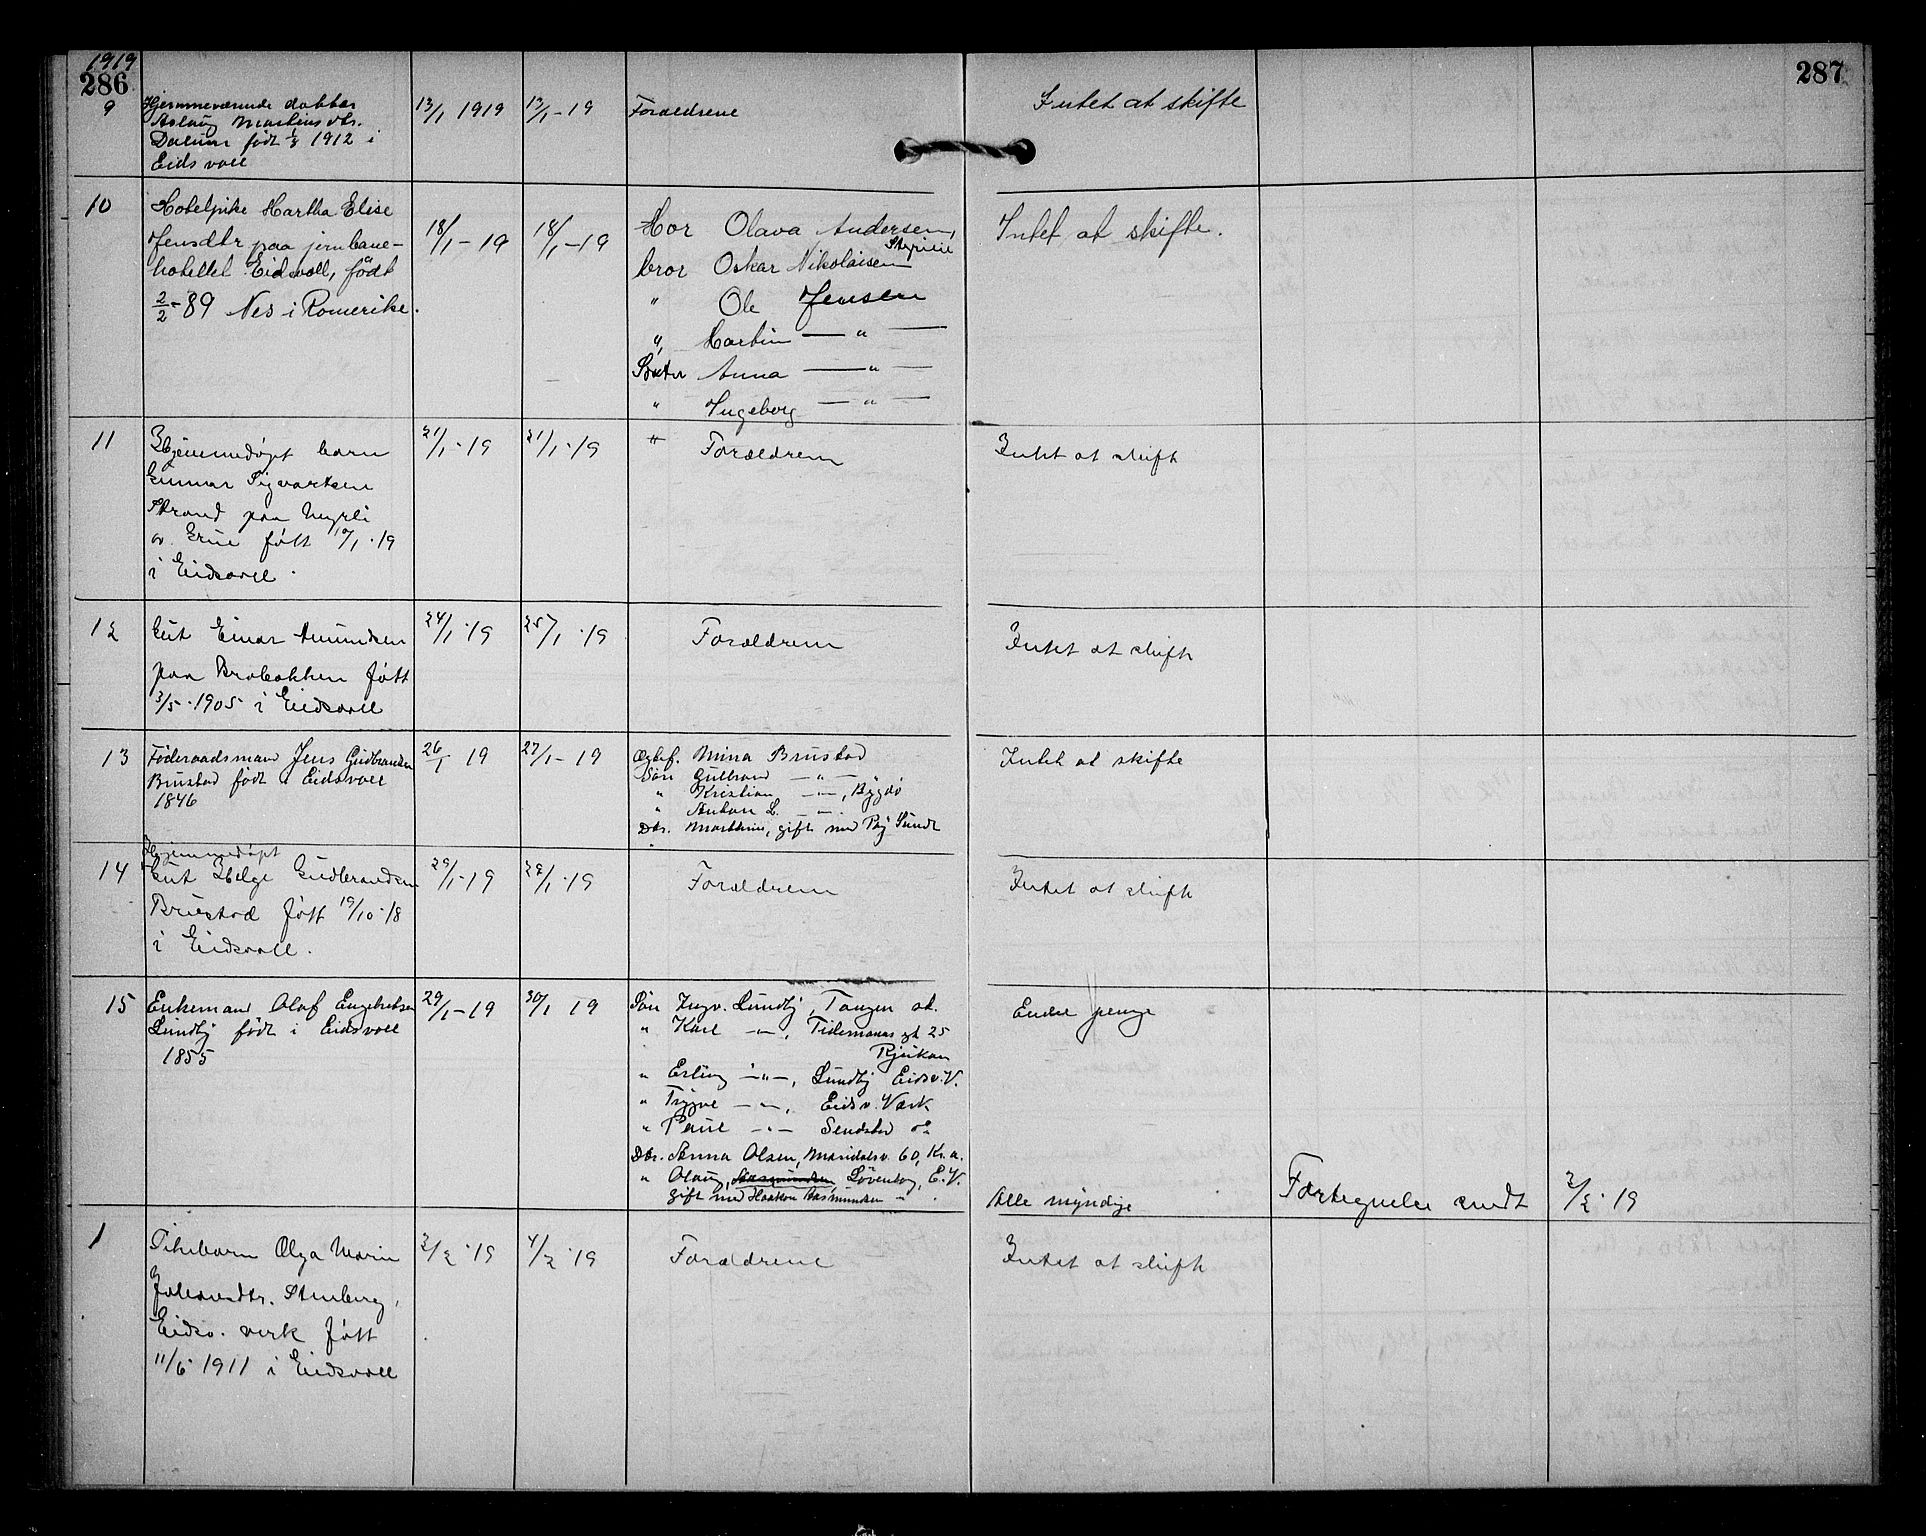 1919
286
287
9
Hjemmeværende datter
Aslaug Martinsdtr.
Dalum født 1912 i
Eidsvoll
13/1 1919
13/1-19
Forældrene
Intet at skifte
10
Hotelpike Martha Elise
Jensdtr paa jernbane-
hotellet Eidsvoll, født
2/2-89 Nes i Romerike.
18/1-19
18/1-19
Mor Olava Andersen,
Styrihei
bror Oskar Nikolaisen
" Ole Jensen
" Martin — " —
Søster Anna — " —
" Ingeborg — " —
Intet at skifte.
11
Hjemmedøpt barn
Gunnar Sigvartsen
Strand paa Myrli
født 10/1·19
i Eidsvoll.
21/1·19
21/1·19
" Forældrene
Intet at skifte
12
Gut Einar Amundsen
paa Brobakken født
3/5·1905 i Eidsvoll
24/1·19
25/1·19
Forældrene
Intet at skifte
13
Føderaadsmand Jens Gudbrandsen
Brustad født i Eidsvoll
1846
26/1 19
27/1-19
Egtef. Mina Brustad
Søn Gulbrand — " —
" Kristian — " —, Bygdø
" Anton L. — " —
Dtr. gift med Sundt
Intet at skifte
14
Hjemmedøpt
Gut Helge Gudbrandsen
Brustad født 19/10·18
i Eidsvoll.
29/1·19
29/1·19
Forældrene
Intet at skifte
15
Enkemand Olaf Engebretsen
Lundby født i Eidsvoll
1855
29/1-19
30/1 19
Søn Ingv. Lundby, Tangen st.
" Karl — " —, Tidemands gt 25
Rjukan
" Erling — " —, Lundby Eidsv. V.
" Trygve — " —, Eidsv. Værk
" Paul — " — Sendstad
Dtr. Anna Olsen, Maridalsv. 60, Kr.a.
" Olaug, Rasmundsen Løvenborg, E.V.
gift med Haakon Rasmundsen " .
Endel penge
Alle myndige
Fortegnelse sendt
2/2·19
1
Pikebarn Olga Marie
Johansdtr. Stenberg,
Eidsv. verk født
11/6·1911 i Eidsvoll
2/2·19
4/2·19
Forældrene
Intet at skifte